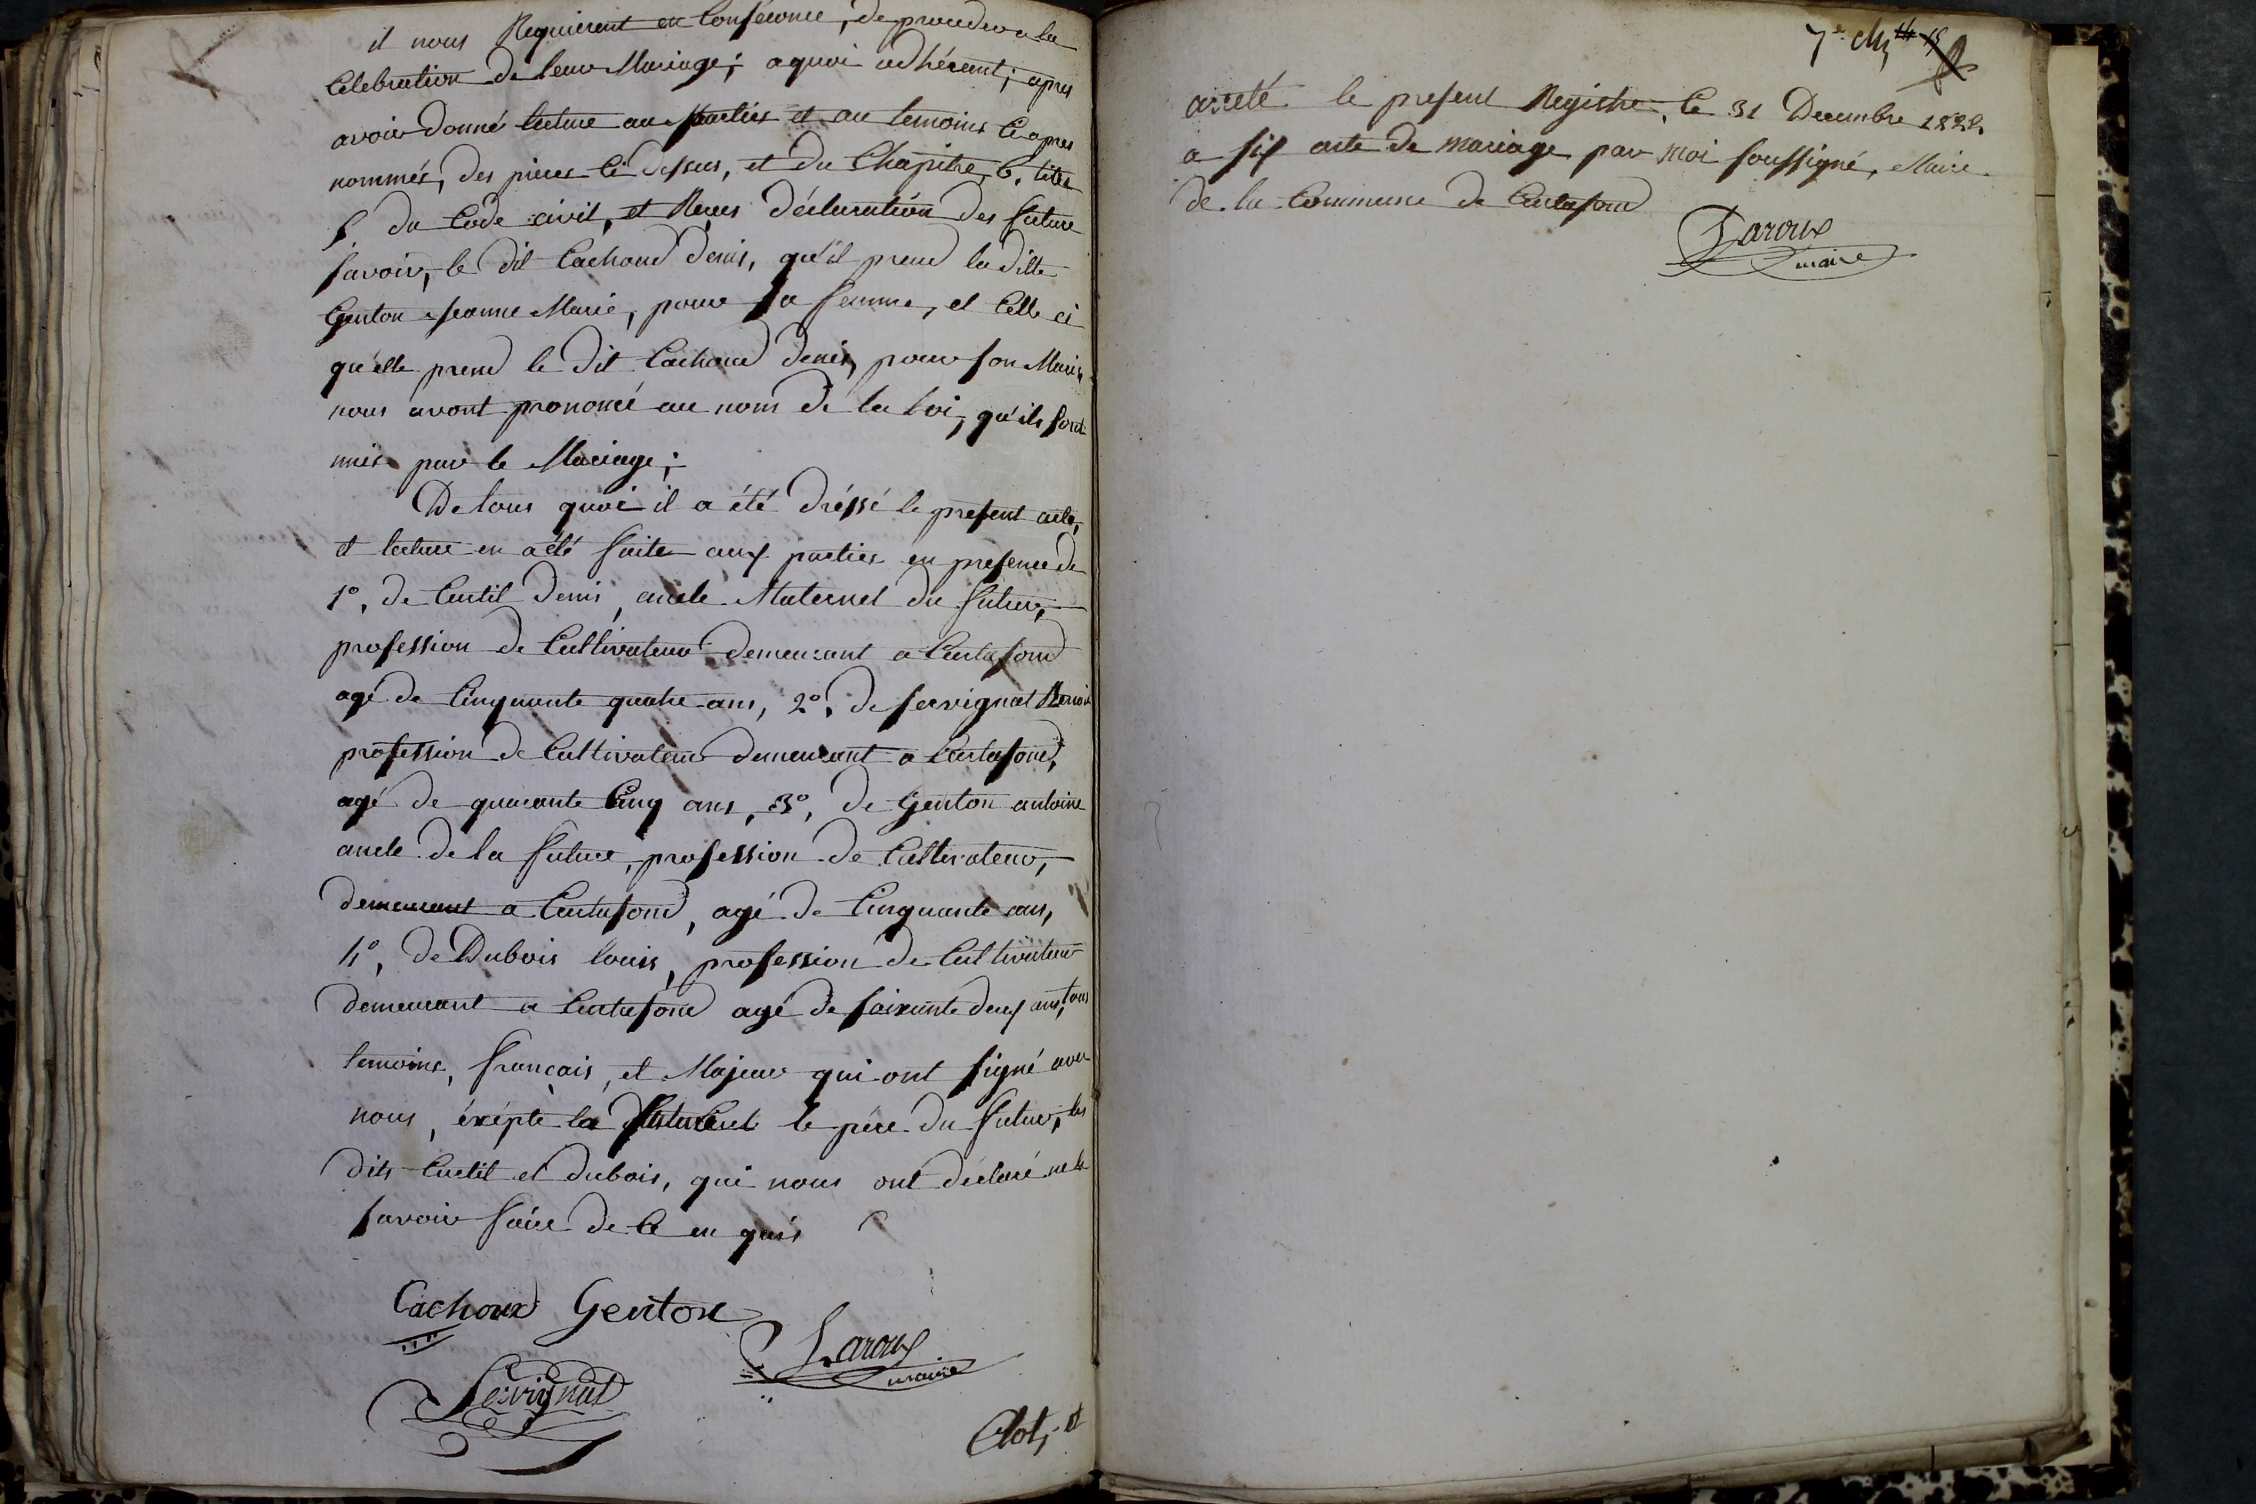 il nous Requierent en Conséconce, de proceder a la
Célébration de leur Mariage; a quoi adhérant; apres
avoir donné lecture au parties et au temoins Ci apres
nommés, des pieces Ci dessus, et du Chapitre 6. titre
5 du Code civil, et Recus déclaration des future
savoir, le dit Cachoud denis, qu'il prend la ditte
Genton Jeanne Marie, pour sa femme, et Celle ci
qu'elle prend le dit Cachoud denis, pour son Mari,
nous avont prononcé au nom de la loi, qu'ils sont
unis par le Mariage;
De tous quoi il a été dréssé le present acte,
et lecture en a été faite aux parties en presence de
1°, de Curtil denis, oncle Maternel du futur,
profession de Cultivateur demeurant a Curtafond
agé de Cinquante quatre ans, 2°, de servignat Benoit
profession de Cultivateur demeurant a Curtafond,
agé de quarante Cinq ans, 3°, de Genton antoine
oncle de la future, profession de Cultivateur,
demeurant a Curtafond, agé de Cinquante ans,
4°, de Dubois louis, profession de Cultivateur
demeurant a Curtafond agé de soixante deux ans, tous
temoins, francais, et Majeur qui ont signé avec
nous, éxépté la future et le père du futur, les
dits Curtil et dubois, qui nous ont déclaré ne le
savoir faire de Ce en quis
Cachoux Genton
Laroux
maire
Servignat
Clot, et
7e
arreté le present Registre, le 31 Decembre 1822
a six acte de mariage par moi soussigné, Maire
de la Commune de Curtafond
Laroux
maire